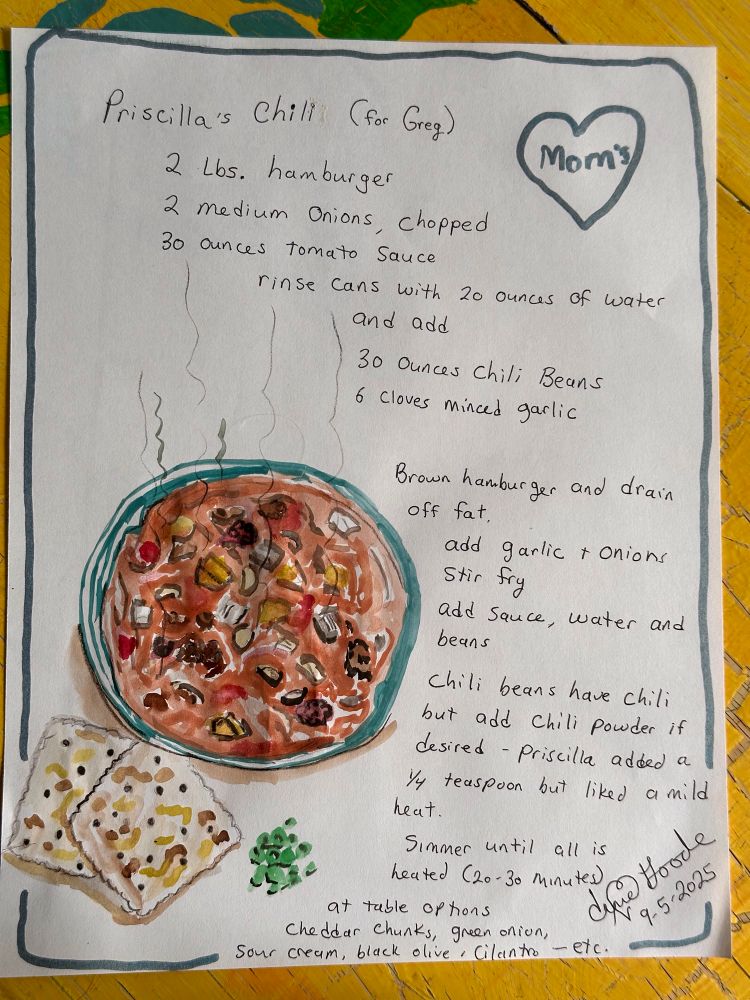 Priscilla's Chili (for Greg)
Mom's
2 Lbs. hamburger
2 medium Onions, chopped
30 ounces tomato Sauce
rinse cans with 20 ounces of water
and add
30 ounces Chili Beans
6 cloves minced garlic
Brown hamburger and drain
off fat.
add garlic + onions
Stir fry
add sauce, water and
beans
Chili beans have chili
but add Chili Powder if
desired - Priscilla added a
1/4 teaspoon but liked a mild
heat.
Simmer until all is
heated (20-30 minutes)
9-5-2025
at table options
Cheddar Chunks, green onion,
Sour cream, black olive, Cilantro - etc.